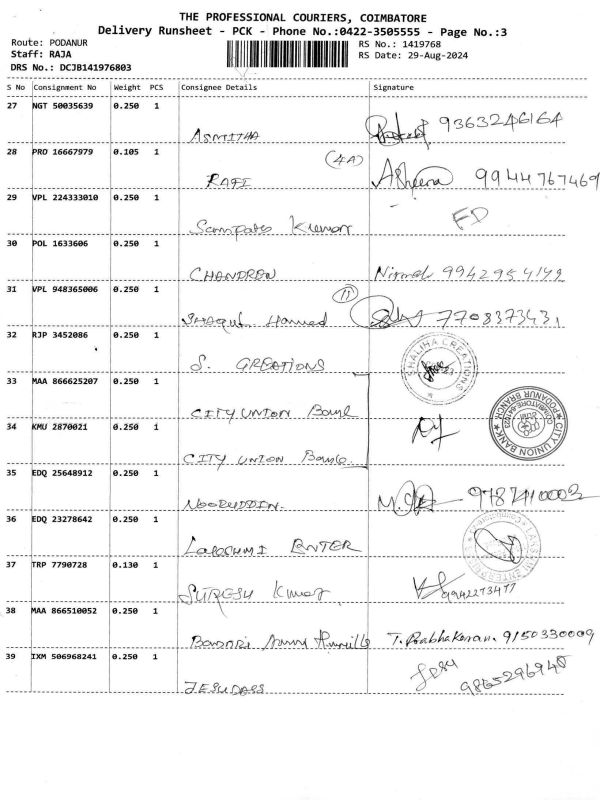 THE PROFESSIONAL COURIERS, COIMBATORE
Delivery Runsheet - PCK - Phone No.:0422-3505555 - Page No.:3
Route: PODANUR
RS No.: 1419768
Staff: RAJA
RS Date: 29-Aug-2024
DRS No.: DCJB141976803
S No Consignment No Weight PCS Consignee Details Signature
27 NGT 50035639 0.250 1
ASMITHA 9363246164
28 PRO 16667979 0.105 1
(4A)
RAFI Asheena 9944767469
29 VPL 224333010 0.250 1
Sampath Kumar FD
30 POL 1633606 0.250 1
CHANDRAN Nirmal 9942954149
31 VPL 948365006 0.250 1
11
Hameed 7708373431
32 RJP 3452086 0.250 1
S. CREATIONS
SHALIHA CREATIONS
33 MAA 866625207 0.250 1
CITY UNION Bank
CITY UNION BANK
PODANUR BRANCH
34 KMU 2870021 0.250 1
CITY UNION Bank
35 EDQ 25648912 0.250 1
NOORUDDIN. 9787410003
36 EDQ 23278642 0.250 1
LAKSHMI ENTER
LAKSHMI ENTERPRISES
37 TRP 7790728 0.130 1
SURESH Kumar 9942273477
38 MAA 866510052 0.250 1
T. Prabhakaran. 9150330009
39 IXM 506968241 0.250 1
JESUDASS Jesu
9865296948